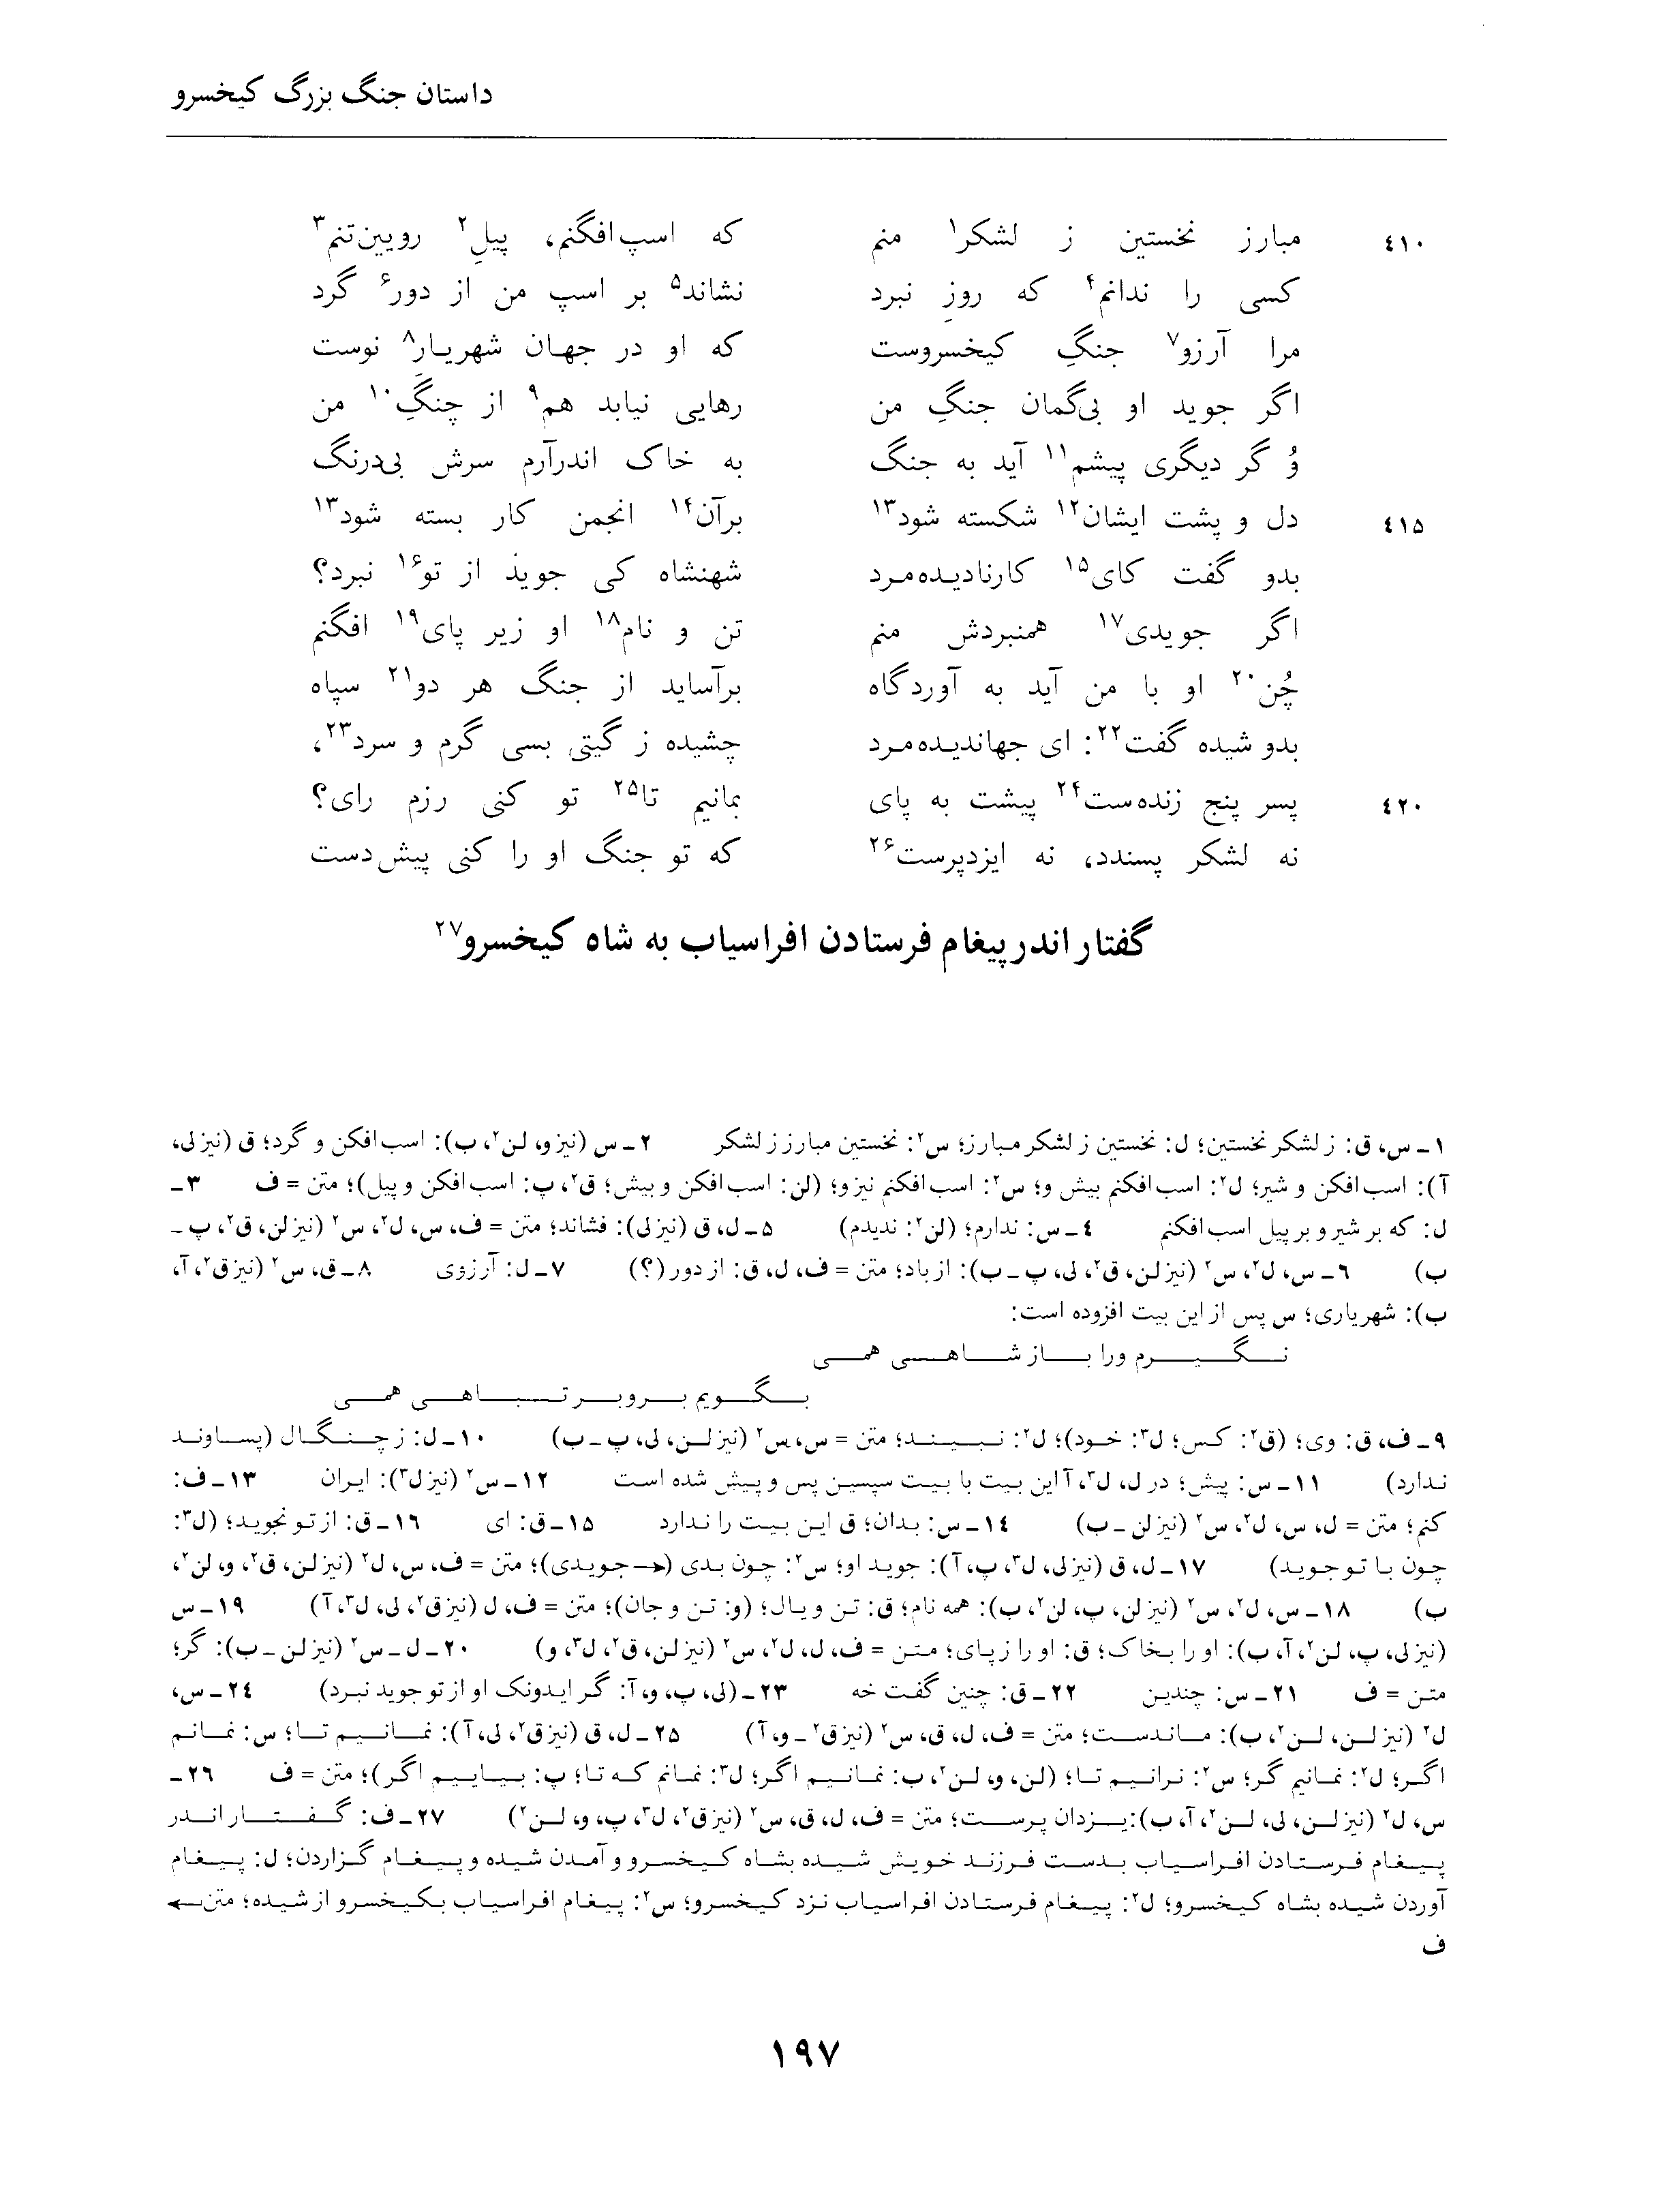 داستان جنگ بزرگ کیخسرو
٤١٠ مبارز نخستین ز لشکر۱ منم که اسپ‌افگنم، پیلِ۲ رویین‌تنم۳
کسی را ندانم۴ که روزِ نبرد نشاند۵ بر اسپ من از دور۶ گرد
مرا آرزو۷ جنگِ کیخسروست که او در جهان شهریار۸ نوست
اگر جوید او بی‌گمان جنگِ من رهایی نیابد هم۹ از چنگِ۱۰ من
وُ گر دیگری پیشم۱۱ آید به جنگ به خاک اندرآرم سرش بی‌درنگ
٤١۵ دل و پشت ایشان۱۲ شکسته شود۱۳ برآن۱۴ انجمن کار بسته شود۱۳
بدو گفت کای۱۵ کارنادیده‌مرد شهنشاه کی جویذ از تو۱۶ نبرد؟
اگر جویدی۱۷ همنبردش منم تن و نام۱۸ او زیر پای۱۹ افگنم
چُن۲۰ او با من آید به آوردگاه برآساید از جنگ هر دو۲۱ سپاه
بدو شیده گفت۲۲: ای جهاندیده‌مرد چشیده ز گیتی بسی گرم و سرد۲۳،
٤٢٠ پسر پنج زنده‌ست۲۴ پیشت به پای بمانیم تا۲۵ تو کنی رزم رای؟
نه لشکر پسندد، نه ایزدپرست۲۶ که تو جنگ او را کنی پیش‌دست
گفتار اندر پیغام فرستادن افراسیاب به شاه کیخسرو۲۷
۱ـ س، ق: ز لشکر نخستین؛ ل: نخستین ز لشکر مبارز؛ س۲: نخستین مبارز ز لشکر ۲ـ س (نیز و، لن۲، ب): اسب‌افکن و گرد؛ ق (نیز لی،
آ): اسب‌افکن و شیر؛ ل۲: اسب‌افکنم بیش و؛ س۲: اسب‌افکنم نیز و؛ (لن: اسب‌افکن و بیش؛ ق۲، پ: اسب‌افکن و پیل)؛ متن = ف ۳ـ
ل: که بر شیر و بر پیل اسب‌افکنم ٤ـ س: ندارم؛ (لن۲: ندیدم) ۵ـ ل، ق (نیز لی): فشاند؛ متن = ف، س، ل۲، س۲ (نیز لن، ق۲، پ ـ
ب) ٦ـ س، ل۲، س۲ (نیز لن، ق۲، لی، پ ـ ب): از باد؛ متن = ف، ل، ق: از دور (؟) ۷ـ ل: آرزوی ۸ـ ق، س۲ (نیز ق۲، آ،
ب): شهریاری؛ س پس از این بیت افزوده است:
نگیرم ورا باز شاهی همی
بگویم بروبر تباهی همی
۹ـ ف، ق: وی؛ (ق۲: کس؛ ل۳: خود)؛ ل۲: نبیند؛ متن = س، س۲ (نیز لن، لی، پ ـ ب) ۱۰ـ ل: ز چنگال (پساوند
ندارد) ۱۱ـ س: پیش؛ در ل، ل۳، آ این بیت با بیت سپسین پس و پیش شده است ۱۲ـ س۲ (نیز ل۳): ایران ۱۳ـ ف:
کنم؛ متن = ل، س، ل۲، س۲ (نیز لن ـ ب) ۱٤ـ س: بدان؛ ق این بیت را ندارد ۱۵ـ ق: ای ۱٦ـ ق: از تو نجوید؛ (ل۳:
چون با تو جوید) ۱۷ـ ل، ق (نیز لی، ل۳، پ، آ): جوید او؛ س۲: چون بدی (← جویدی)؛ متن = ف، س، ل۲ (نیز لن، ق۲، و، لن۲،
ب) ۱۸ـ س، ل۲، س۲ (نیز لن، پ، لن۲، ب): همه نام؛ ق: تن و یال؛ (و: تن و جان)؛ متن = ف، ل (نیز ق۲، لی، ل۳، آ) ۱۹ـ س
(نیز لی، پ، لن۲، آ، ب): او را بخاک؛ ق: او را ز پای؛ متن = ف، ل، ل۲، س۲ (نیز لن، ق۲، ل۳، و) ۲۰ـ ل ـ س۲ (نیز لن ـ ب): گر؛
متن = ف ۲۱ـ س: چندین ۲۲ـ ق: چنین گفت خه ۲۳ـ (لی، پ، و، آ: گر ایدونک او از تو جوید نبرد) ۲٤ـ س،
ل۲ (نیز لن، لن۲، ب): ماندست؛ متن = ف، ل، ق، س۲ (نیز ق۲ ـ و، آ) ۲۵ـ ل، ق (نیز ق۲، لی، آ): نمانیم تا؛ س: نمانم
اگر؛ ل۲: نمانیم گر؛ س۲: نرانیم تا؛ (لن، و، لن۲، ب: نمانیم اگر؛ ل۳: نمانم که تا؛ پ: بیاییم اگر)؛ متن = ف ۲٦ـ
س، ل۲ (نیز لن، لی، لن۲، آ، ب): یزدان پرست؛ متن = ف، ل، ق، س۲ (نیز ق۲، ل۳، پ، و، لن۲) ۲۷ـ ف: گفتار اندر
پیغام فرستادن افراسیاب بدست فرزند خویش شیده بشاه کیخسرو و آمدن شیده و پیغام گزاردن؛ ل: پیغام
آوردن شیده بشاه کیخسرو؛ ل۲: پیغام فرستادن افراسیاب نزد کیخسرو؛ س۲: پیغام افراسیاب بکیخسرو از شیده؛ متن ←
ف
۱۹۷